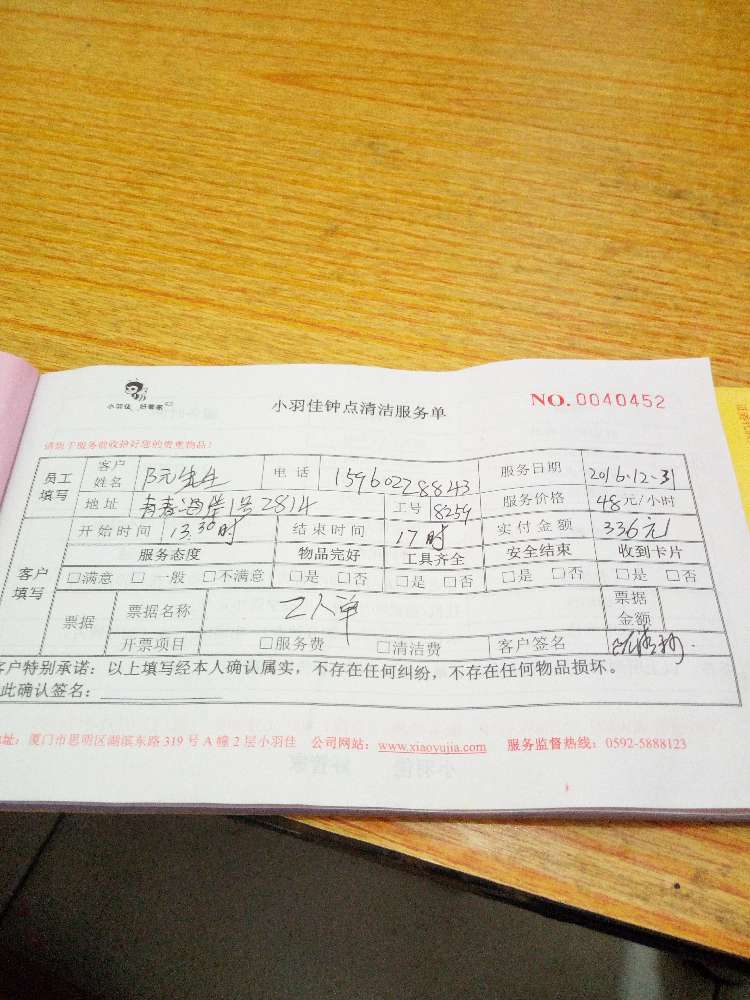 小羽佳 好管家
小羽佳钟点清洁服务单
NO.0040452
请您于服务前收拾好您的贵重物品！
员工填写 客户姓名 阮先生 电话 15960228843 服务日期 2016.12.31
地址 1号2814 工号 8259 服务价格 48元/小时
客户填写 开始时间 13.30时 结束时间 17时 实付金额 336元
服务态度 物品完好 工具齐全 安全结束 收到卡片
□满意 □一般 □不满意 □是 □否 □是 □否 □是 □否 □是 □否
票据 票据名称 2人单 票据金额
开票项目 □服务费 □清洁费 客户签名
客户特别承诺：以上填写经本人确认属实，不存在任何纠纷，不存在任何物品损坏。
此确认签名：
地址：厦门市思明区湖滨东路319号A幢2层小羽佳 公司网站：www.xiaoyujia.com 服务监督热线：0592-5888123